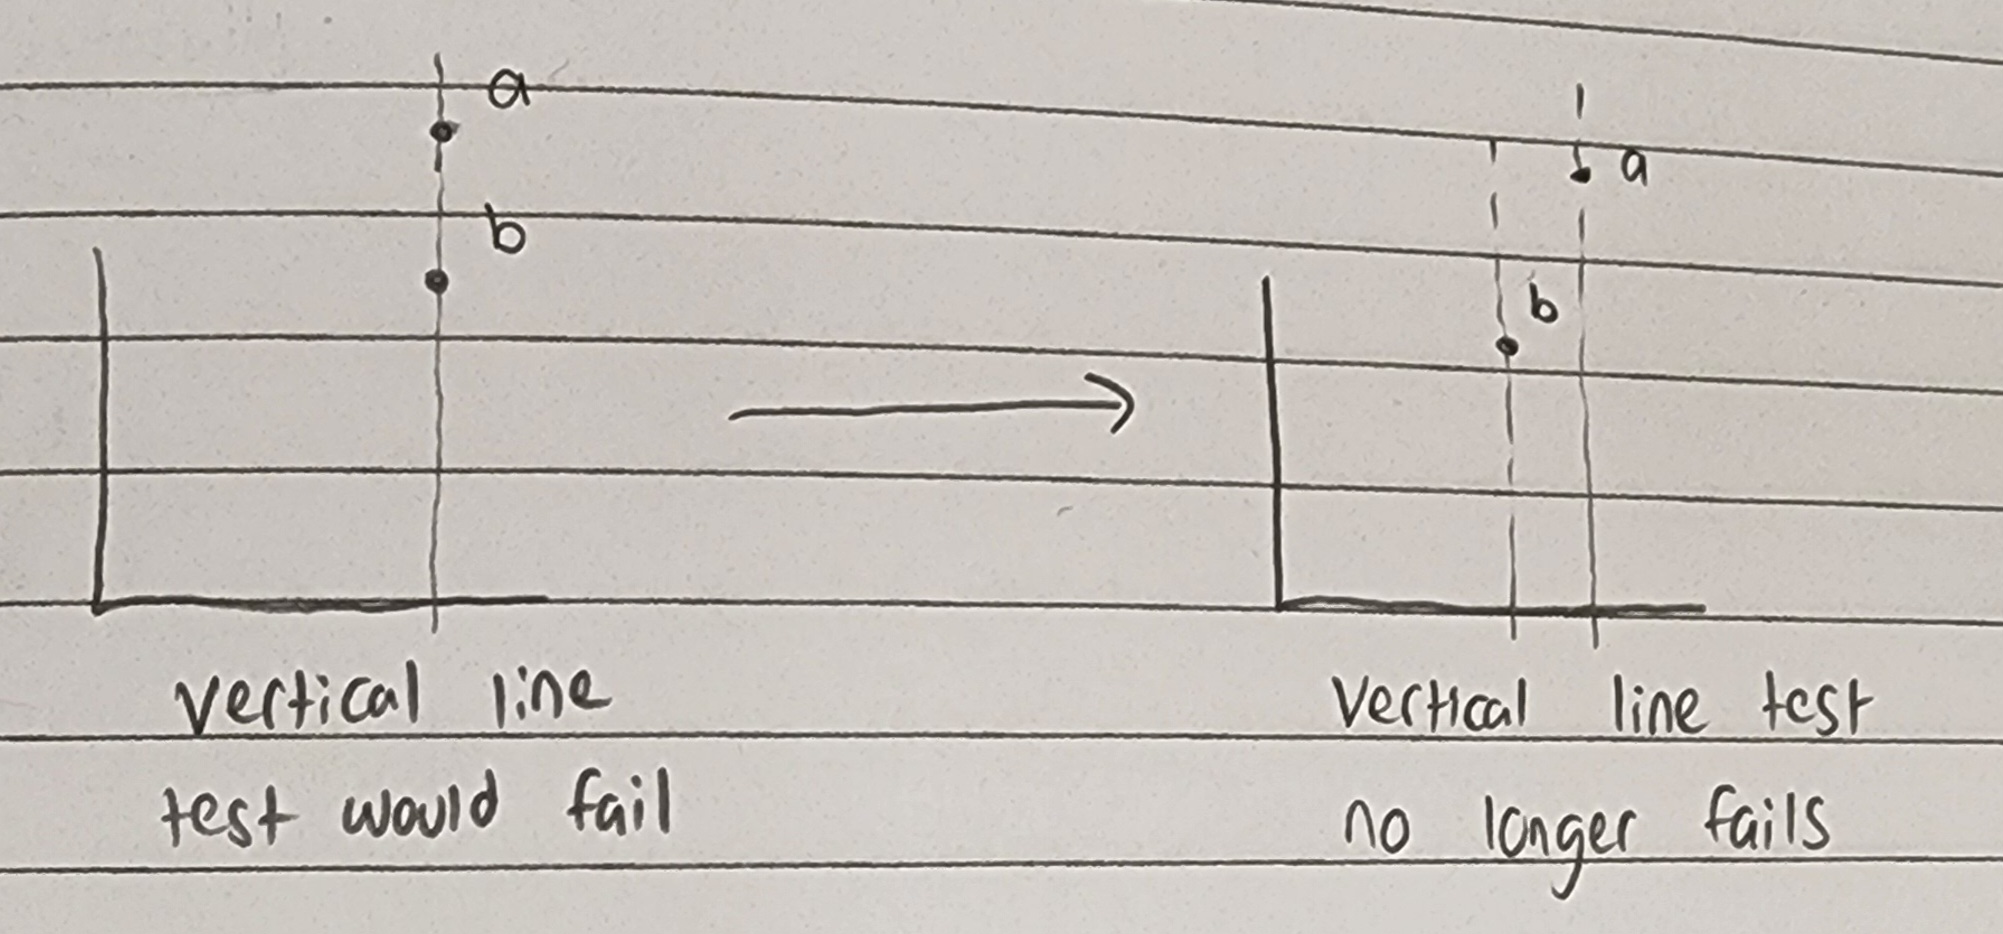 a
b
a
b
vertical line
test would fail
Vertical line test
no longer fails